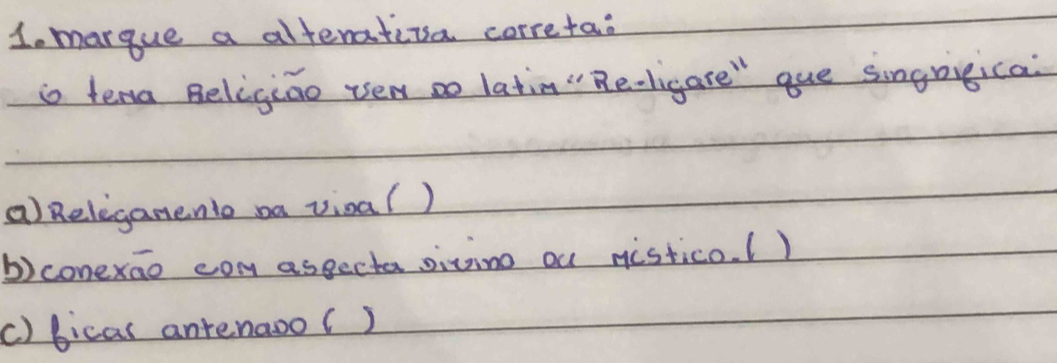 1. marque a altenativa correta:
o tema Religião vem do latim "Re-ligare" que singnifica:
a) Religamento da vida ( )
b) conexão com aspecta divino ou místico. ( )
c) ficar antenado ( )